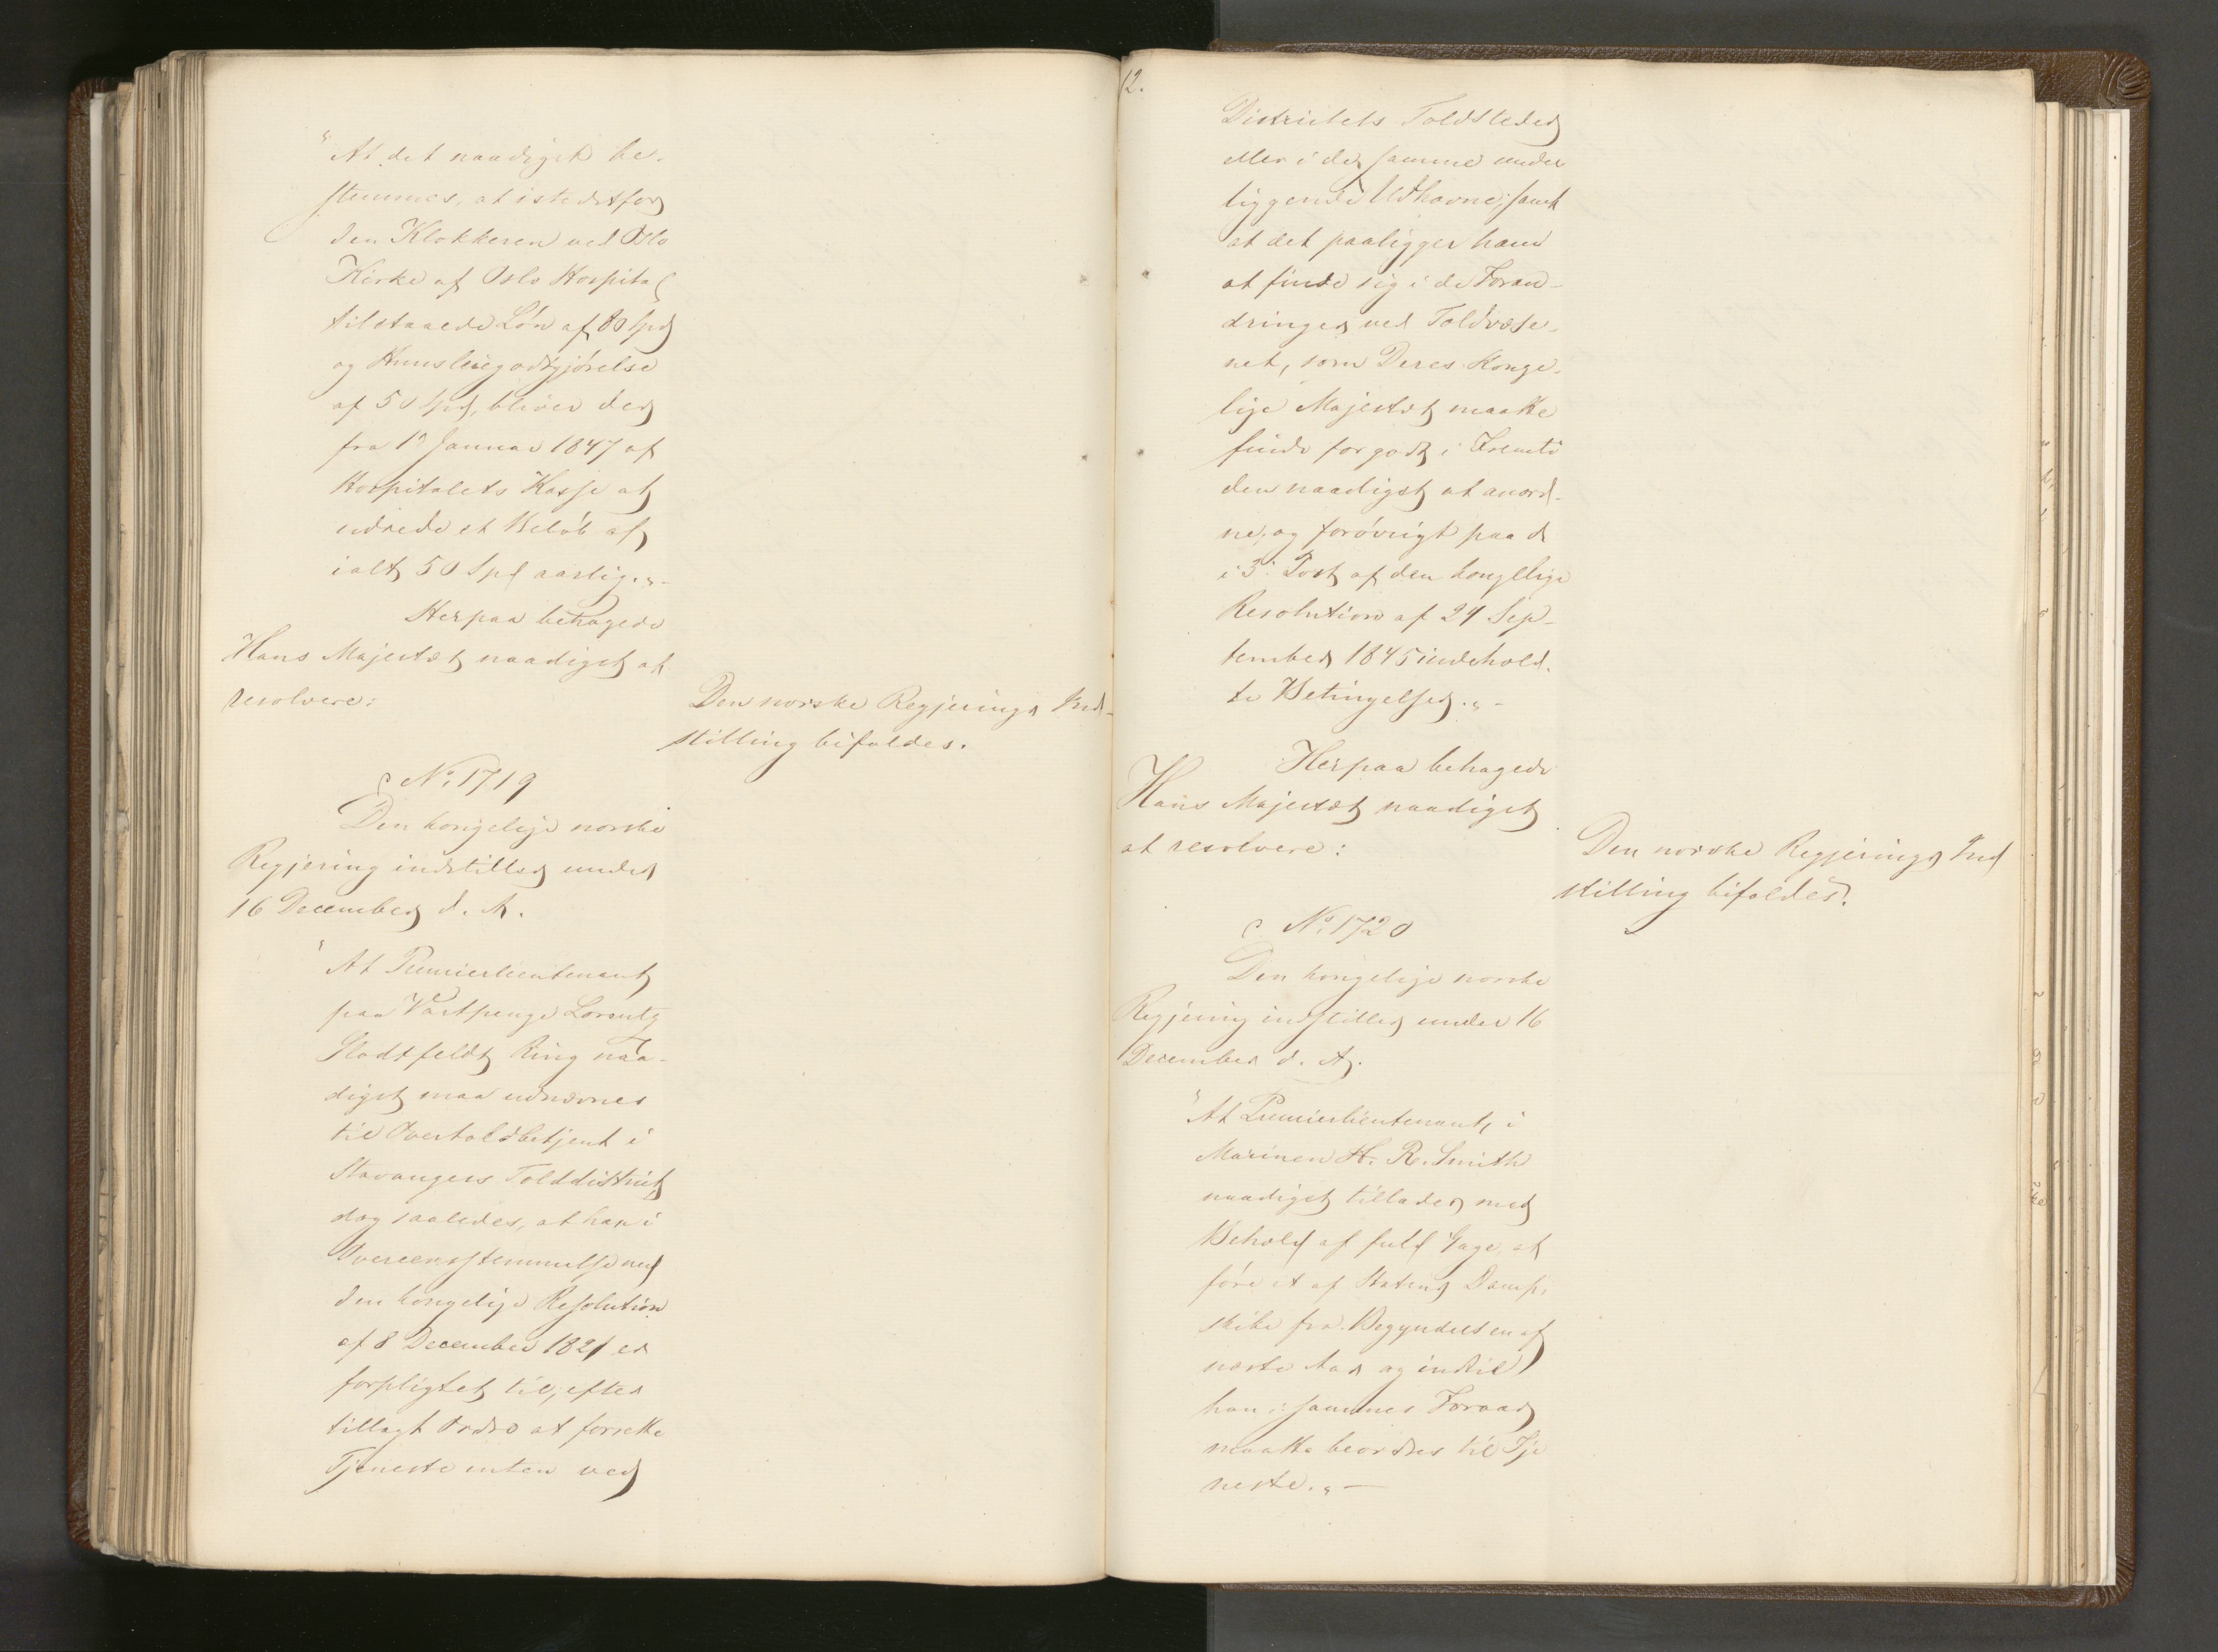 "At det naadigst be-
stemmes, at istedetfor
den Klokkeren ved Oslo
Kirke af Oslo Hospital
tilstaaede Løn af 80 Spd
og Huusleiegodtgjørelse
af 50 Spd, bliver der
fra 1ste Januar 1847 af
Hospitalets Kasse at
udrede et Beløb af
ialt 50 Spd aarlig."-
Herpaa behagede
Hans Majestæt naadigst at
resolvere:
Den norske Regjerings Ind-
stilling bifaldes.
No. 1719
Den kongelige norske
Regjering indstiller under
16 December d. A.
"At Premierlieutenant
paa Vartpenge Lorentz
Stadtfeldt Ring naa-
digst maa udnævnes
til Overtoldbetjent i
Stavangers Tolddistrict
dog saaledes, at han i
Overeensstemmelse med
den kongelige Resolution
af 8 December 1821 er
forpligtet til, efter
tillagt Ordre at forrette
Tjeneste enten ved
12.
Districtets Toldsteder
eller i de samme under
liggende Udhavne, samt
at det paaligger ham
at finde sig i de Foran-
dringer ved Toldvæse-
net, som Deres Konge-
lige Majestæt maatte
finde for godt i Fremti
den naadigst at anord-
ne, og forøvrigt paa de
i 3. Post af den kongelige
Resolution af 24 Sep-
tember 1845 indehold-
te Betingelser."-
Herpaa behagede
Hans Majestæt naadigst
at resolvere:
Den norske Regjerings Ind
stilling bifaldes.
No. 1720
Den kongelige norske
Regjering indstiller under 16
December d. A.
"At Premierlieutenant i
Marinen H. R. Smith
naadigst tillades med
Behold af fuld Gage, at
føre et af Statens Damp-
skibe fra Begyndelsen af
næste Aar og indtil
han i sammes Foraar
maatte beordres til Tje
neste."-